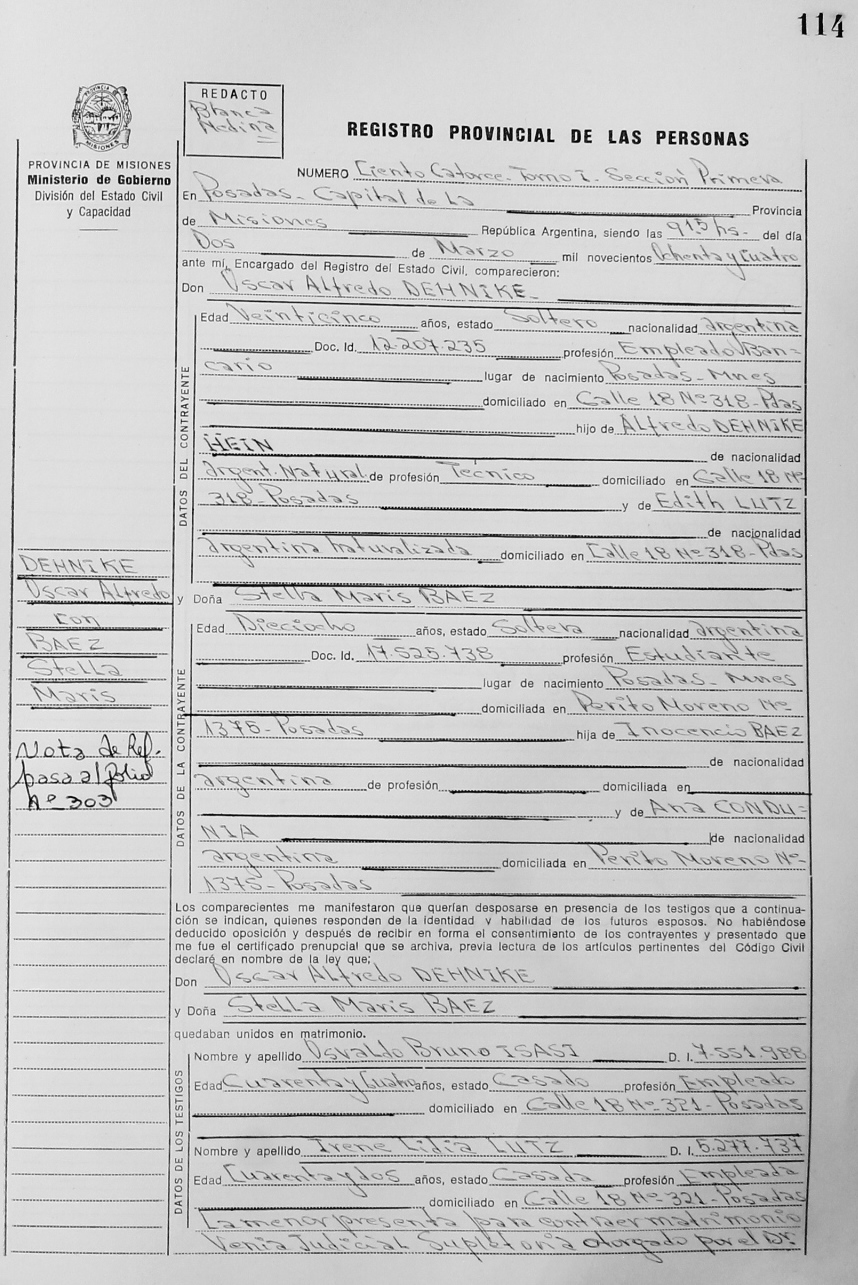 114
PROVINCIA DE MISIONES
Ministerio de Gobierno
División del Estado Civil
y Capacidad
REDACTO
Blanca
Medina
REGISTRO PROVINCIAL DE LAS PERSONAS
NUMERO Ciento Catorce - Tomo I - Sección Primera
En Posadas - Capital de La Provincia
de Misiones República Argentina, siendo las 915 hs - del día
Dos de Marzo mil novecientos Ochenta y Cuatro
ante mi, Encargado del Registro del Estado Civil, comparecieron:
Don Oscar Alfredo DEHNIKE
DATOS DEL CONTRAYENTE
Edad Veinticinco años, estado Soltero nacionalidad argentina
Doc. Id. 12.207.235 profesión Empleado Ban=
cario lugar de nacimiento Posadas - Mnes
domiciliado en Calle 18 Nº 318 - Pdas
hijo de Alfredo DEHNIKE
HEIN de nacionalidad
argent. Natural de profesión Técnico domiciliado en Calle 18 Nº
318 - Posadas y de Edith LUTZ
de nacionalidad
argentina naturalizada domiciliado en Calle 18 Nº 318 - Pdas
y Doña Stella Maris BAEZ
DATOS DE LA CONTRAYENTE
Edad Dieciocho años, estado Soltera nacionalidad argentina
Doc. Id. 17.525.738 profesión Estudiante
lugar de nacimiento Posadas - Mnes
domiciliada en Perito Moreno Nº
1375 - Posadas hija de Inocencio BAEZ
de nacionalidad
argentina de profesión domiciliada en
y de Ana CONDU=
NIA de nacionalidad
argentina domiciliada en Perito Moreno Nº
1375 - Posadas
Los comparecientes me manifestaron que querían desposarse en presencia de los testigos que a continua-
ción se indican, quienes responden de la identidad y habilidad de los futuros esposos. No habiéndose
deducido oposición y después de recibir en forma el consentimiento de los contrayentes y presentado que
me fue el certificado prenupcial que se archiva, previa lectura de los artículos pertinentes del Código Civil
declaré en nombre de la ley que;
Don Oscar Alfredo DEHNIKE
y Doña Stella Maris BAEZ
quedaban unidos en matrimonio.
DATOS DE LOS TESTIGOS
Nombre y apellido Osvaldo Bruno ISASI D. I. 7.551.988
Edad Cuarenta y Cuatro años, estado Casado profesión Empleado
domiciliado en Calle 18 Nº 321 - Posadas
Nombre y apellido Irene Lidia LUTZ D. I. 5.277.737
Edad Cuarenta y dos años, estado Casada profesión Empleada
domiciliado en Calle 18 Nº 321 - Posadas
La menor presenta para contraer matrimonio
Venia Judicial Supletoria otorgado por el Dr.
DEHNIKE
Oscar Alfredo
con
BAEZ
Stella
Maris
Nota de Ref.
pasa al folio
Nº 303